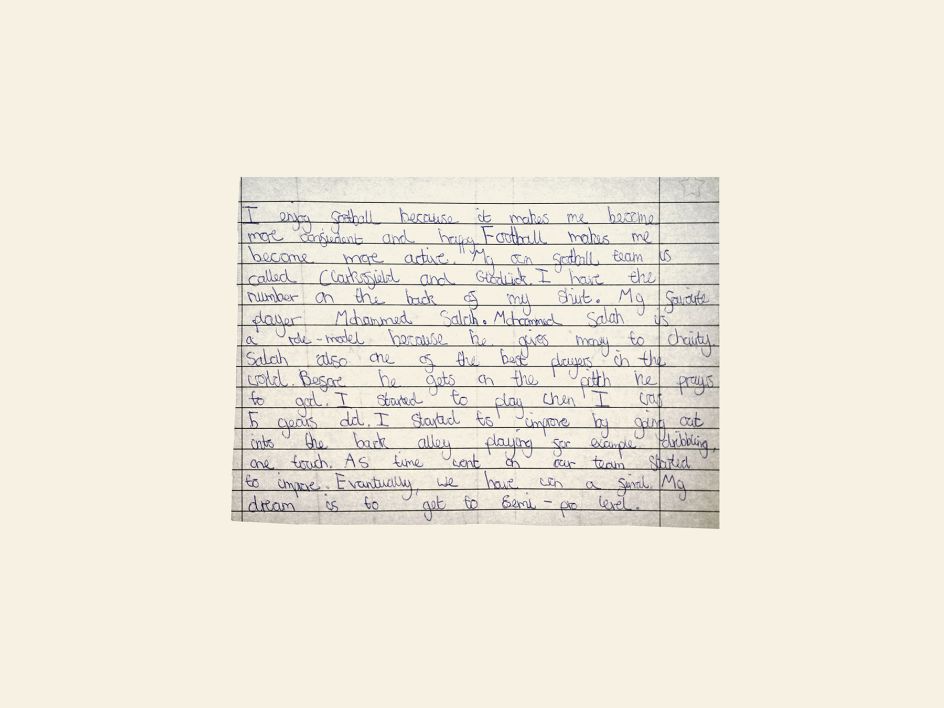 I enjoy football because it makes me become
more confiedent and happy. Football makes me
become more active. My own football team is
called Clarksfield and Glodwick. I have the
number on the back of my shirt. My favourite
player Mohammed Salah. Mohammed Salah is
a role-model because he gives money to charity.
Salah also one of the best players in the
world. Before he gets on the pitch he prays
to god. I started to play when I was
5 years old. I started to improve by going out
into the back alley playing for example dribbling,
one touch. As time went on our team started
to improve. Evantually, we have won a final. My
dream is to get to Semi-pro level.